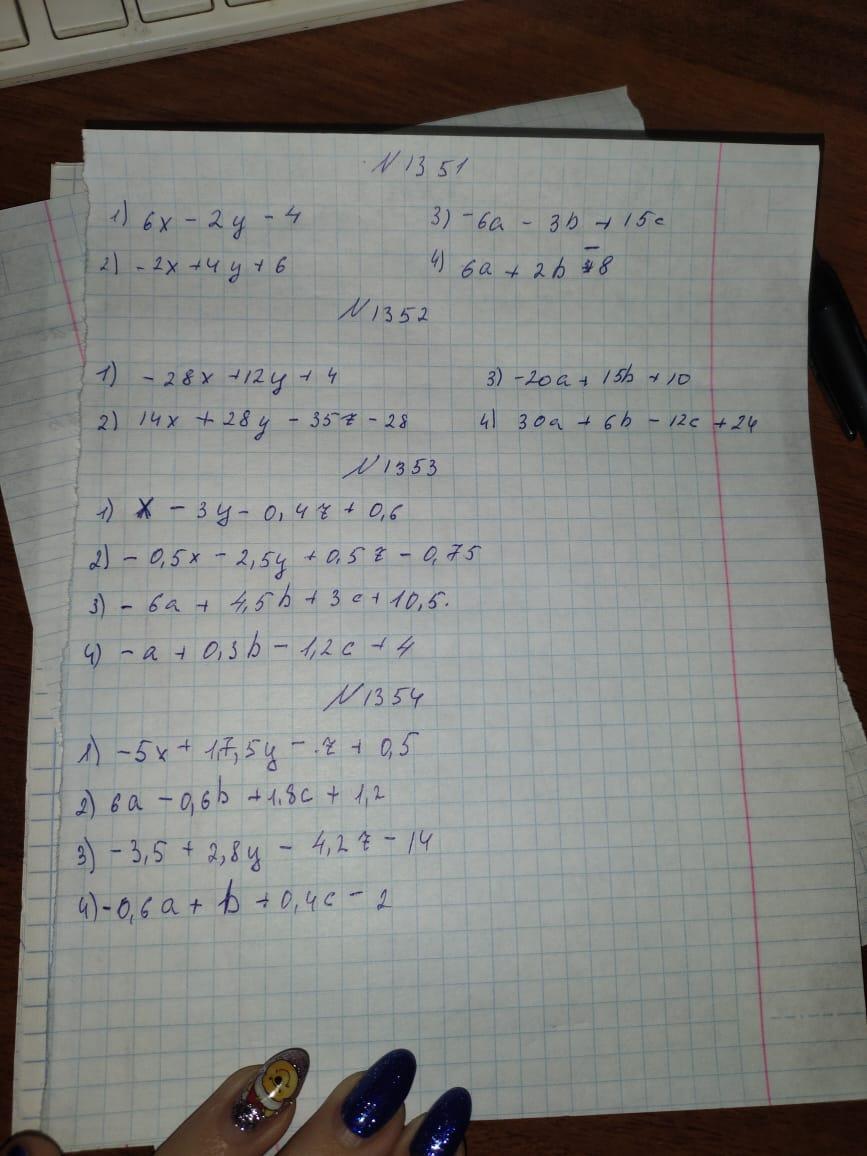 N1351
1) 6x - 2y - 4
3) -6a - 3b + 15c
2) -2x + 4y + 6
4) 6a + 2b - 8
N1352
1) -28x + 12y + 4
3) -20a + 15b + 10
2) 14x + 28y - 35z - 28
4) 30a + 6b - 12c + 24
N1353
1) x - 3y - 0,4z + 0,6
2) - 0,5x - 2,5y + 0,5z - 0,75
3) - 6a + 4,5b + 3c + 10,5.
4) -a + 0,3b - 1,2c + 4
N1354
1) -5x + 17,5y - z + 0,5
2) 6a - 0,6b + 1,8c + 1,2
3) - 3,5 + 2,8y - 4,2z - 14
4) -0,6a + b + 0,4c - 2